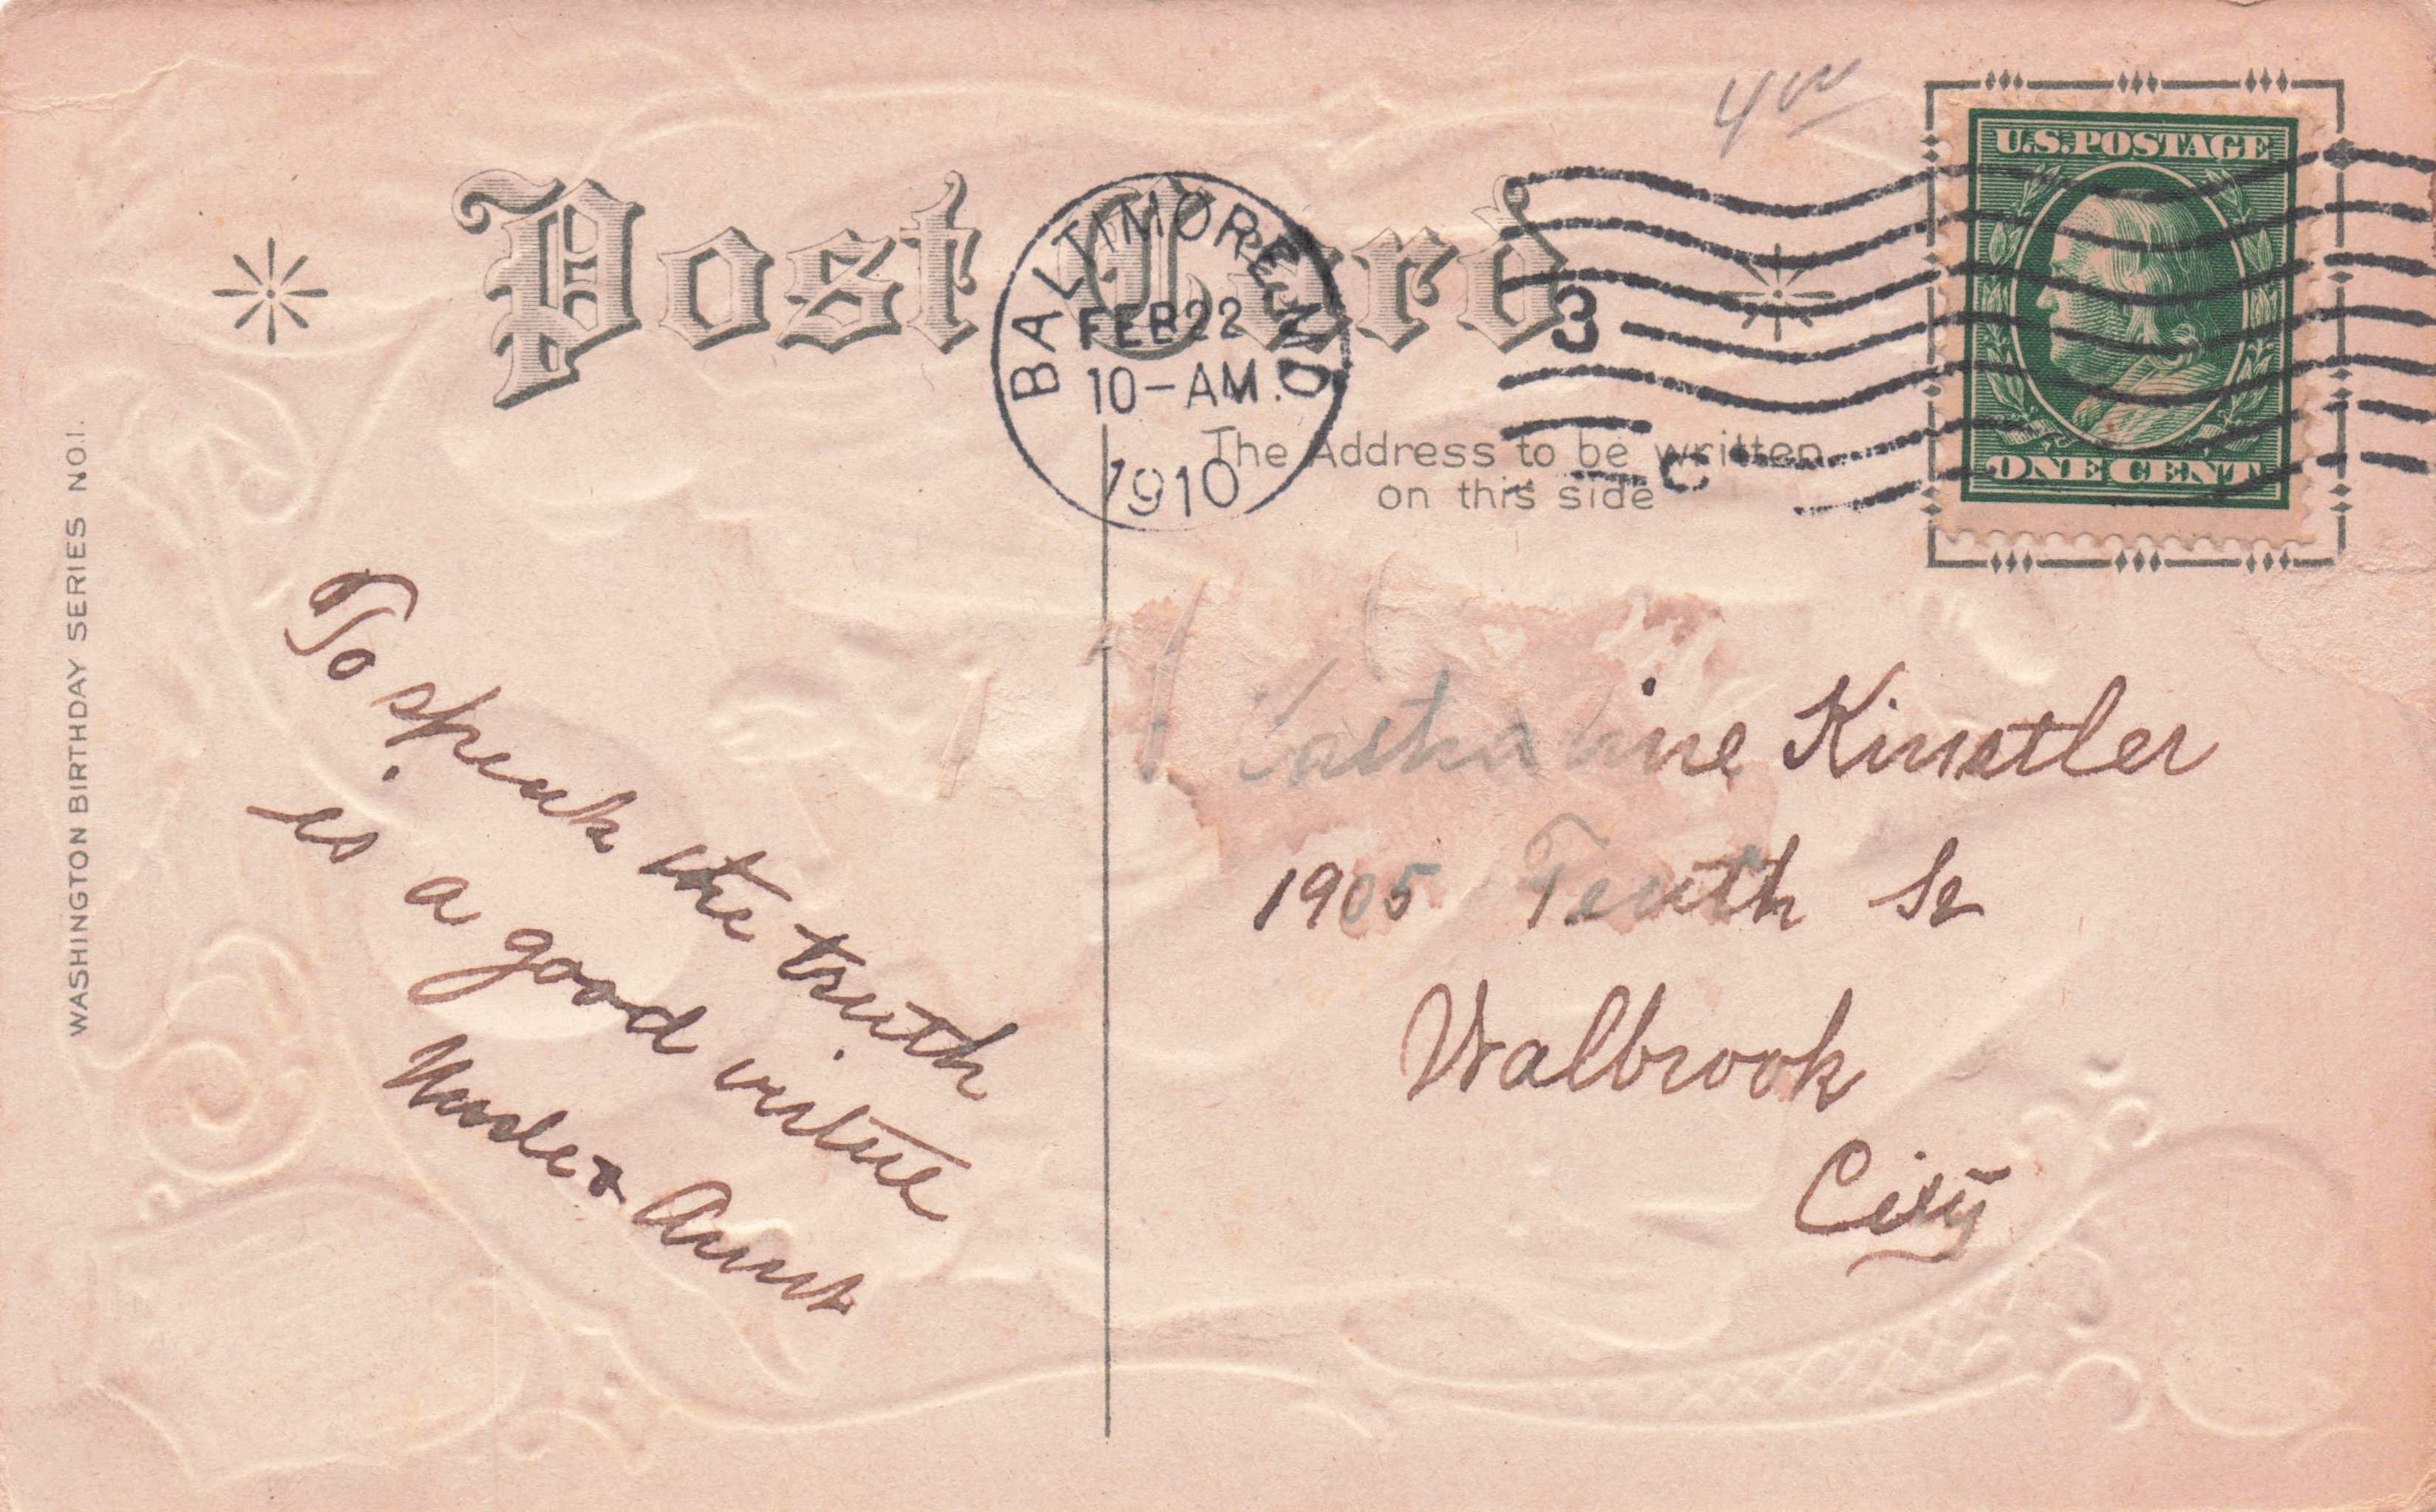 WASHINGTON BIRTHDAY SERIES NO.1.
Post Card
BALTIMORE, MD.
FEB 22
10-AM
1910
3
C
4 00
U.S. POSTAGE
ONE CENT
The Address to be written
on this side
To speak the truth
is a good virtue
Uncle & Aunt
Katharine Kinstler
1905 Tenth St
Walbrook
City